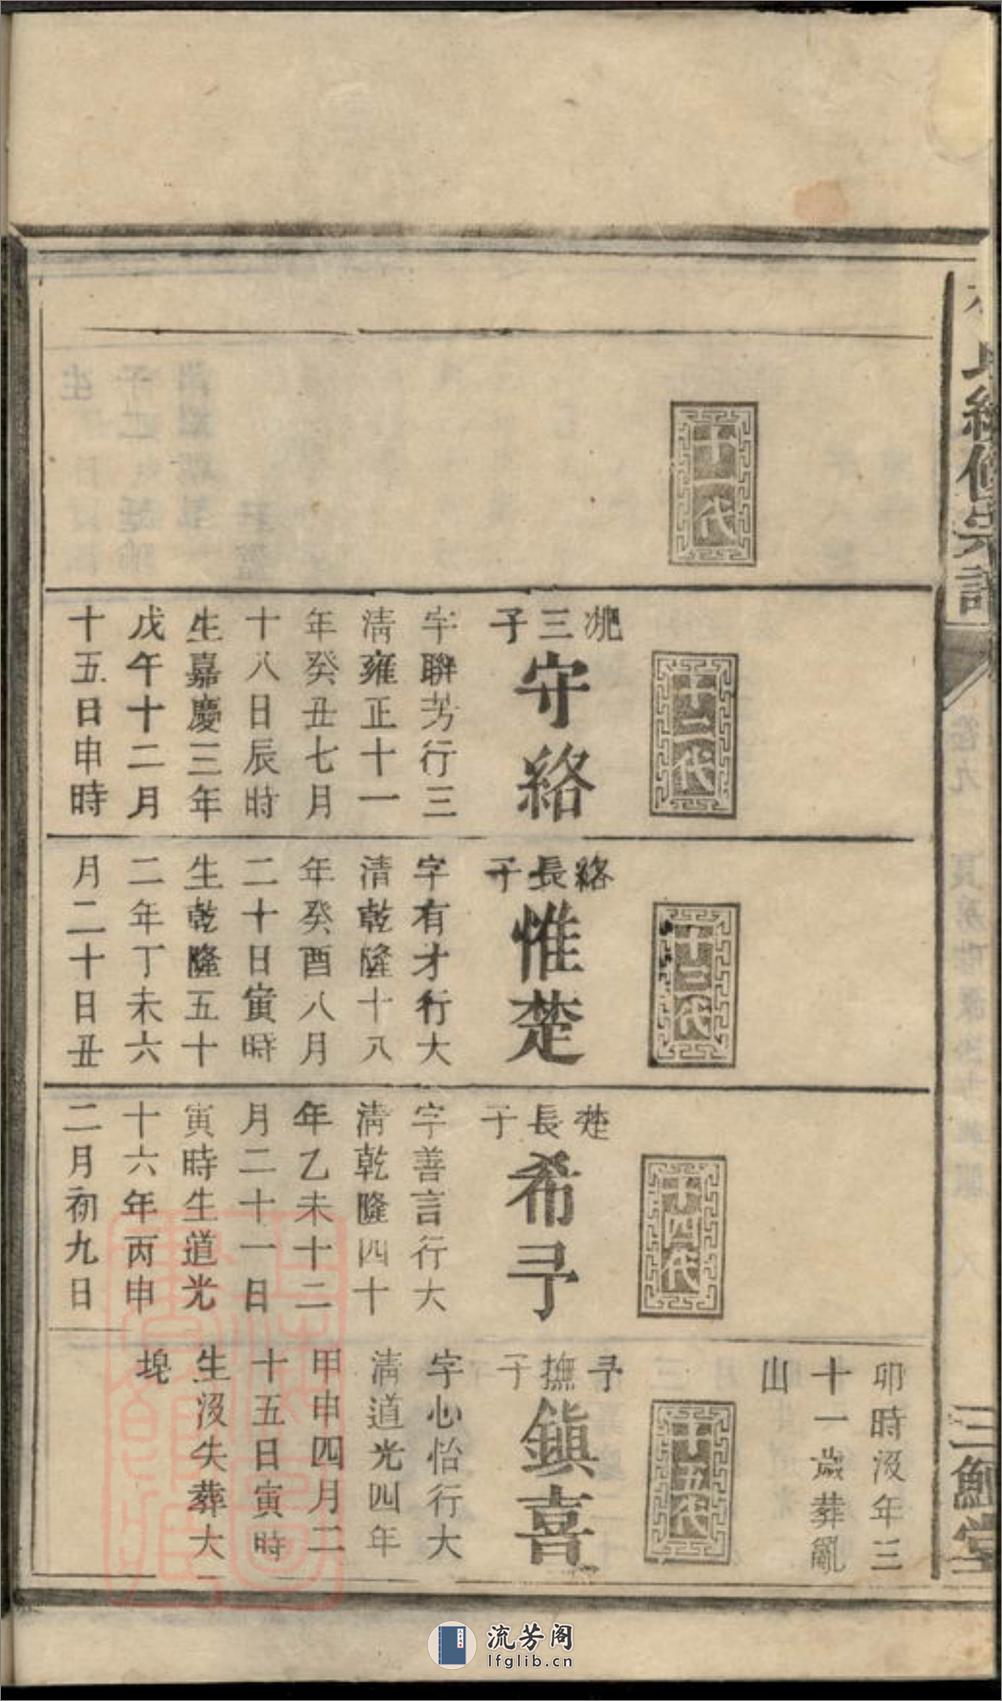 氏續修宗譜
卷九
三鱣堂
十一代
十二代
兆三子
守絡
字聯芳行三
清雍正十一
年癸丑七月
十八日辰時
生嘉慶三年
戊午十二月
十五日申時
十三代
絡長子
惟楚
字有才行大
清乾隆十八
年癸酉八月
二十日寅時
生乾隆五十
二年丁未六
月二十日丑
十四代
楚長子
希予
字善言行大
清乾隆四十
年乙未十二
月二十一日
寅時生道光
十六年丙申
二月初九日
卯時沒年三
十一歲葬亂
山
十五代
予撫子
鎮喜
字心怡行大
清道光四年
甲申四月二
十五日寅時
生沒失葬大
堍
流芳阁
lfglib.cn